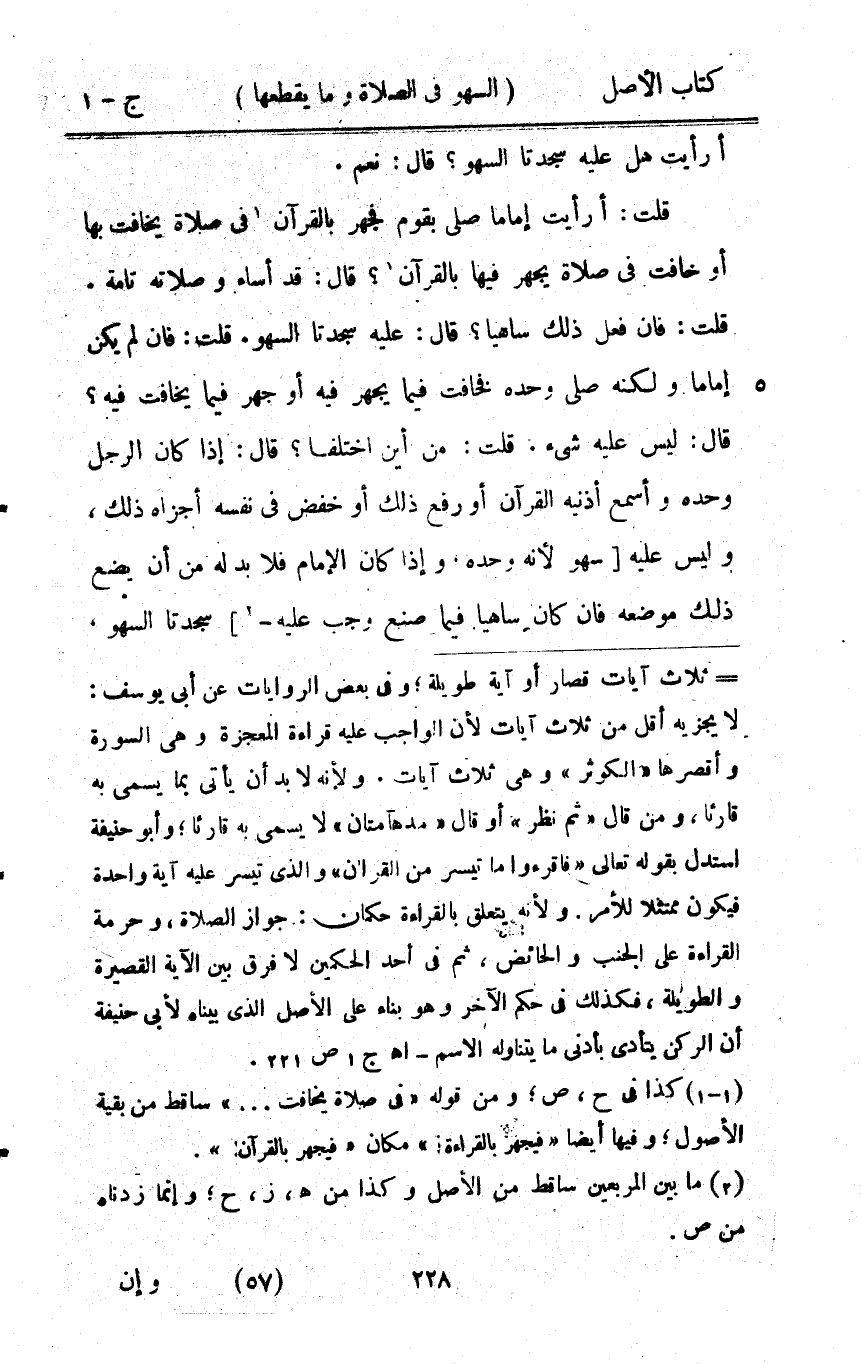 كتاب الأصل ( السهو فى الصلاة و ما يقطعها ) ج - ١
أ رأيت هل عليه سجدتا السهو ؟ قال : نعم .
قلت : أ رأيت إماما صلى بقوم فجهر بالقرآن ١ فى صلاة يخافت بها
أو خافت فى صلاة يجهر فيها بالقرآن ١ ؟ قال : قد أساء و صلاته تامة .
قلت : فان فعل ذلك ساهيا ؟ قال : عليه سجدتا السهو . قلت : فان لم يكن
إماما و لكنه صلى وحده فخافت فيما يجهر فيه أو جهر فيما يخافت فيه ؟ ٥
قال : ليس عليه شىء . قلت : من أين اختلفا ؟ قال : إذا كان الرجل
وحده و أسمع أذنيه القرآن أو رفع ذلك أو خفض فى نفسه أجزاه ذلك ،
و ليس عليه [ سهو لأنه وحده ، و إذا كان الإمام فلا بد له من أن يضع
ذلك موضعه فان كان ساهيا فيما صنع وجب عليه - ٢ ] سجدتا السهو ،
= ثلاث آيات قصار أو آية طويلة ؛ و فى بعض الروايات عن أبى يوسف :
لا يجزيه أقل من ثلاث آيات لأن الواجب عليه قراءة المعجزة و هى السورة
و أقصرها « الكوثر » و هى ثلاث آيات . و لأنه لا بد أن يأتى بما يسمى به
قارئا ، و من قال « ثم نظر » أو قال « مدهآمتان » لا يسمى به قارئا ؛ و أبو حنيفة
استدل بقوله تعالى « فاقرءوا ما تيسر من القرآن » و الذى تيسر عليه آية واحدة
فيكون ممتثلا للأمر . و لأنه يتعلق بالقراءة حكمان : جواز الصلاة ، و حرمة
القراءة على الجنب و الحائض ، ثم فى أحد الحكمين لا فرق بين الآية القصيرة
و الطويلة ، فكذلك فى حكم الآخر و هو بناء على الأصل الذى بيناه لأبى حنيفة
أن الركن يتأدى بأدنى ما يتناوله الاسم - اه ج ١ ص ٢٢١ .
(١-١) كذا فى ح ، ص ؛ و من قوله « فى صلاة يخافت ... » ساقط من بقية
الأصول ؛ و فيها أيضا « فيجهر بالقراءة » مكان « فيجهر بالقرآن » .
(٢) ما بين المربعين ساقط من الأصل و كذا من ه ، ز ، ح ؛ و إنما زدناه
من ص .
٢٢٨ (٥٧) و إن